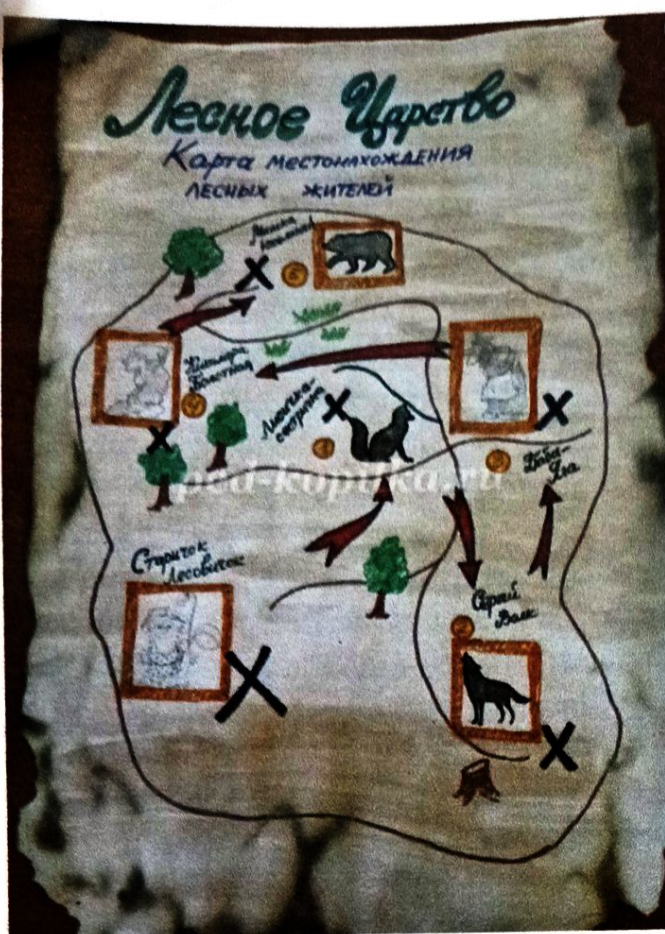 Лесное Царство
Карта местонахождения
лесных жителей
Мишка
5
Кикимора
Болотная
4
Лисичка-
сестричка
1
3
Баба-
Яга
ped-kopilka.ru
Старичок
Лесовичок
Серый
Волк
2